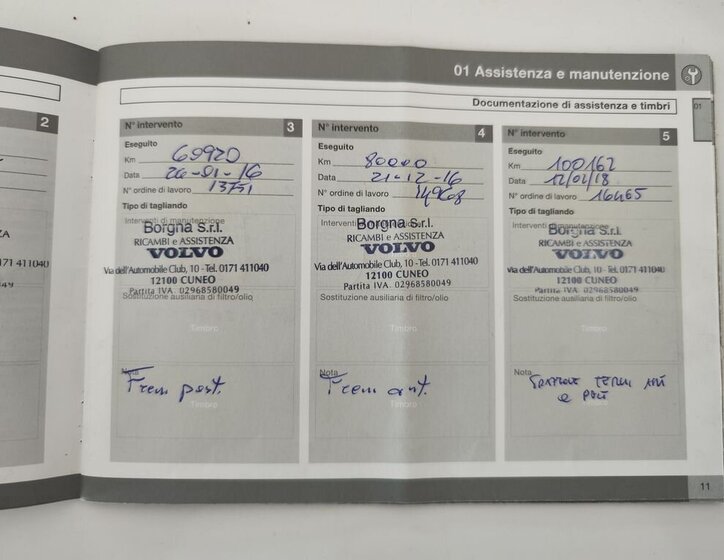 01 Assistenza e manutenzione
Documentazione di assistenza e timbri
01
2
171 411040
N° intervento 3
Eseguito
Km 69920
Data 26-01-16
N° ordine di lavoro 13751
Tipo di tagliando
Interventi di manutenzione
Borgna S.r.l.
RICAMBI e ASSISTENZA
VOLVO
Via dell'Automobile Club, 10 - Tel. 0171 411040
12100 CUNEO
Partita IVA 02968580049
Sostituzione ausiliaria di filtro/olio
Timbro
Nota
Freni post.
Timbro
N° intervento 4
Eseguito
Km 80000
Data 21-12-16
N° ordine di lavoro 14968
Tipo di tagliando
Borgna S.r.l.
RICAMBI e ASSISTENZA
VOLVO
Via dell'Automobile Club, 10 - Tel. 0171 411040
12100 CUNEO
Partita IVA 02968580049
Sostituzione ausiliaria di filtro/olio
Timbro
Nota
Freni ant.
Timbro
N° intervento 5
Eseguito
Km 100162
Data 12/02/18
N° ordine di lavoro 16465
Tipo di tagliando
Interventi di manutenzione
Borgna S.r.l.
RICAMBI e ASSISTENZA
VOLVO
Via dell'Automobile Club, 10 - Tel. 0171 411040
12100 CUNEO
Partita IVA 02968580049
Sostituzione ausiliaria di filtro/olio
Timbro
Nota
e post
Timbro
11